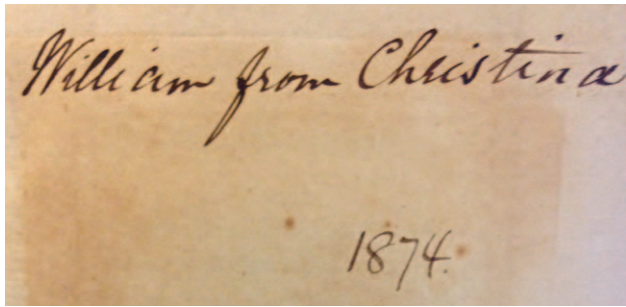 William from Christina
1874.